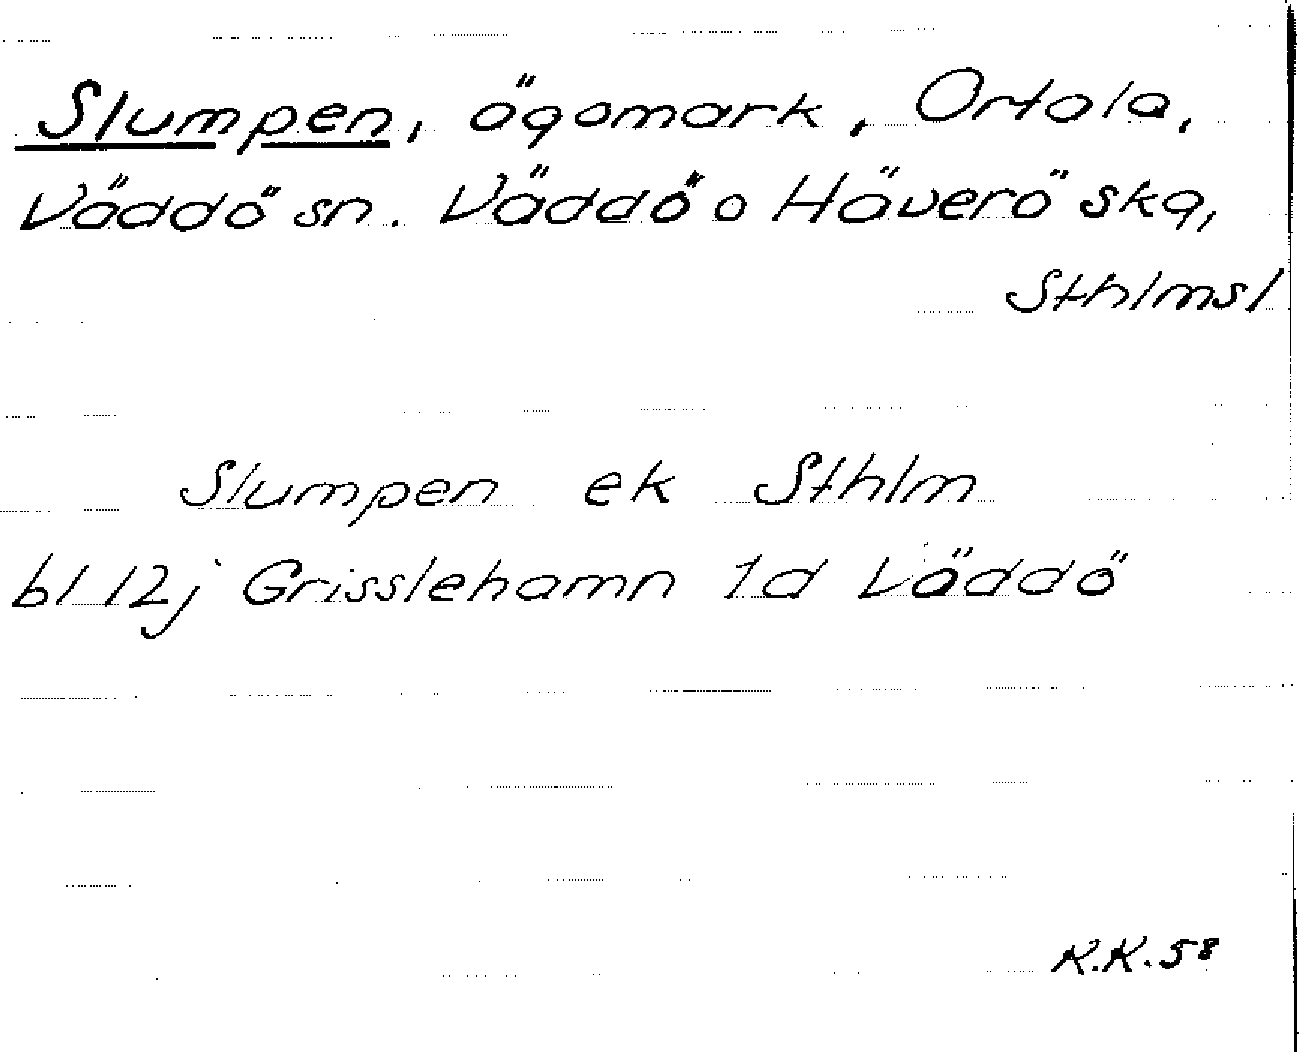 Slumpen, ägomark, Ortola,
Väddö sn. Väddö o Häverö skg,
Sthlmsl
Slumpen ek Sthlm
bl 12j Grisslehamn 1d Väddö
K.K.58